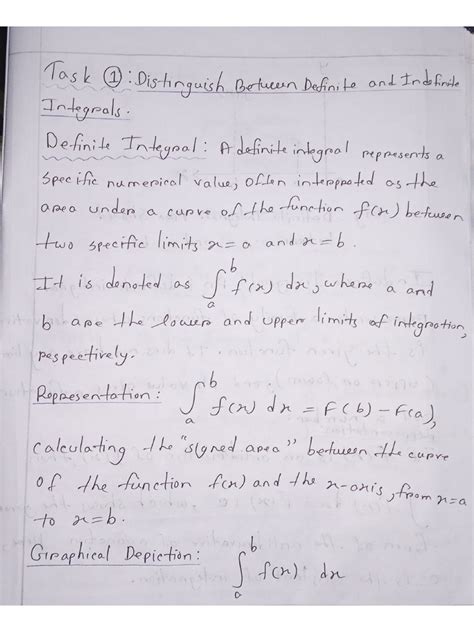 Task ①: Distinguish Between Definite and Indefinite
Integrals.
Definite Integral: A definite integral represents a
specific numerical value, often interpreted as the
area under a curve of the function f(x) between
two specific limits x = a and x = b.
It is denoted as ∫_a^b f(x) dx, where a and
b are the lower and upper limits of integration,
respectively.
Representation: ∫_a^b f(x) dx = F(b) - F(a),
calculating the "signed area" between the curve
of the function f(x) and the x-axis, from x=a
to x=b.
Graphical Depiction: ∫_a^b f(x) dx